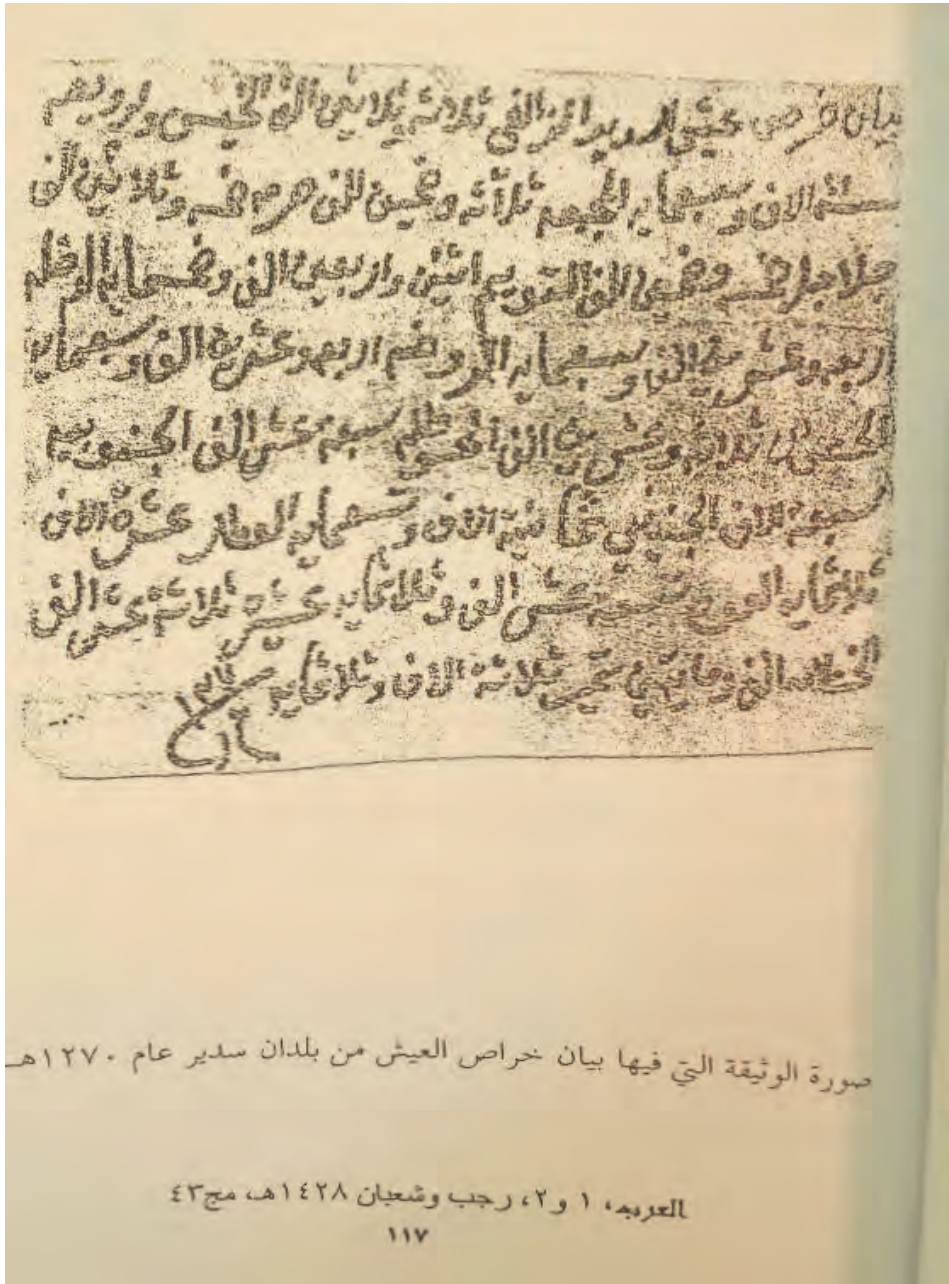 بيان خرص عيش سدير الزلفي ثلاثة ثلاثين الف الخيس والرويضه
ستة الاف وسبعمايه المجمعه ثلاثه وخمسين الف حرمه خمسه وثلاثين الف
جلاجل خمسه وخمسين الف التويم اثنين واربعين الف وخمسمايه
اربعه وعشرين الف وسبعمايه الروضه اربعه وعشرين الف وسبعمايه
ثلاثه وعشرين الف سبعة عشر الف الجنوبيه
سبعة الاف الجنيفي ثمانية الاف وتسعمايه العطار عشرة الاف
ثلاثمايه العودة تسعه عشر الف وثلاثمايه عشيره ثلاثة عشر الف
الف تمير ثلاثة الاف وثلاثمايه
تاريخ ١٢٧٠
صورة الوثيقة التي فيها بيان خراص العيش من بلدان سدير عام ١٢٧٠هـ
العرب، ١ و٢، رجب وشعبان ١٤٢٨هـ، مج٤٣
١١٧